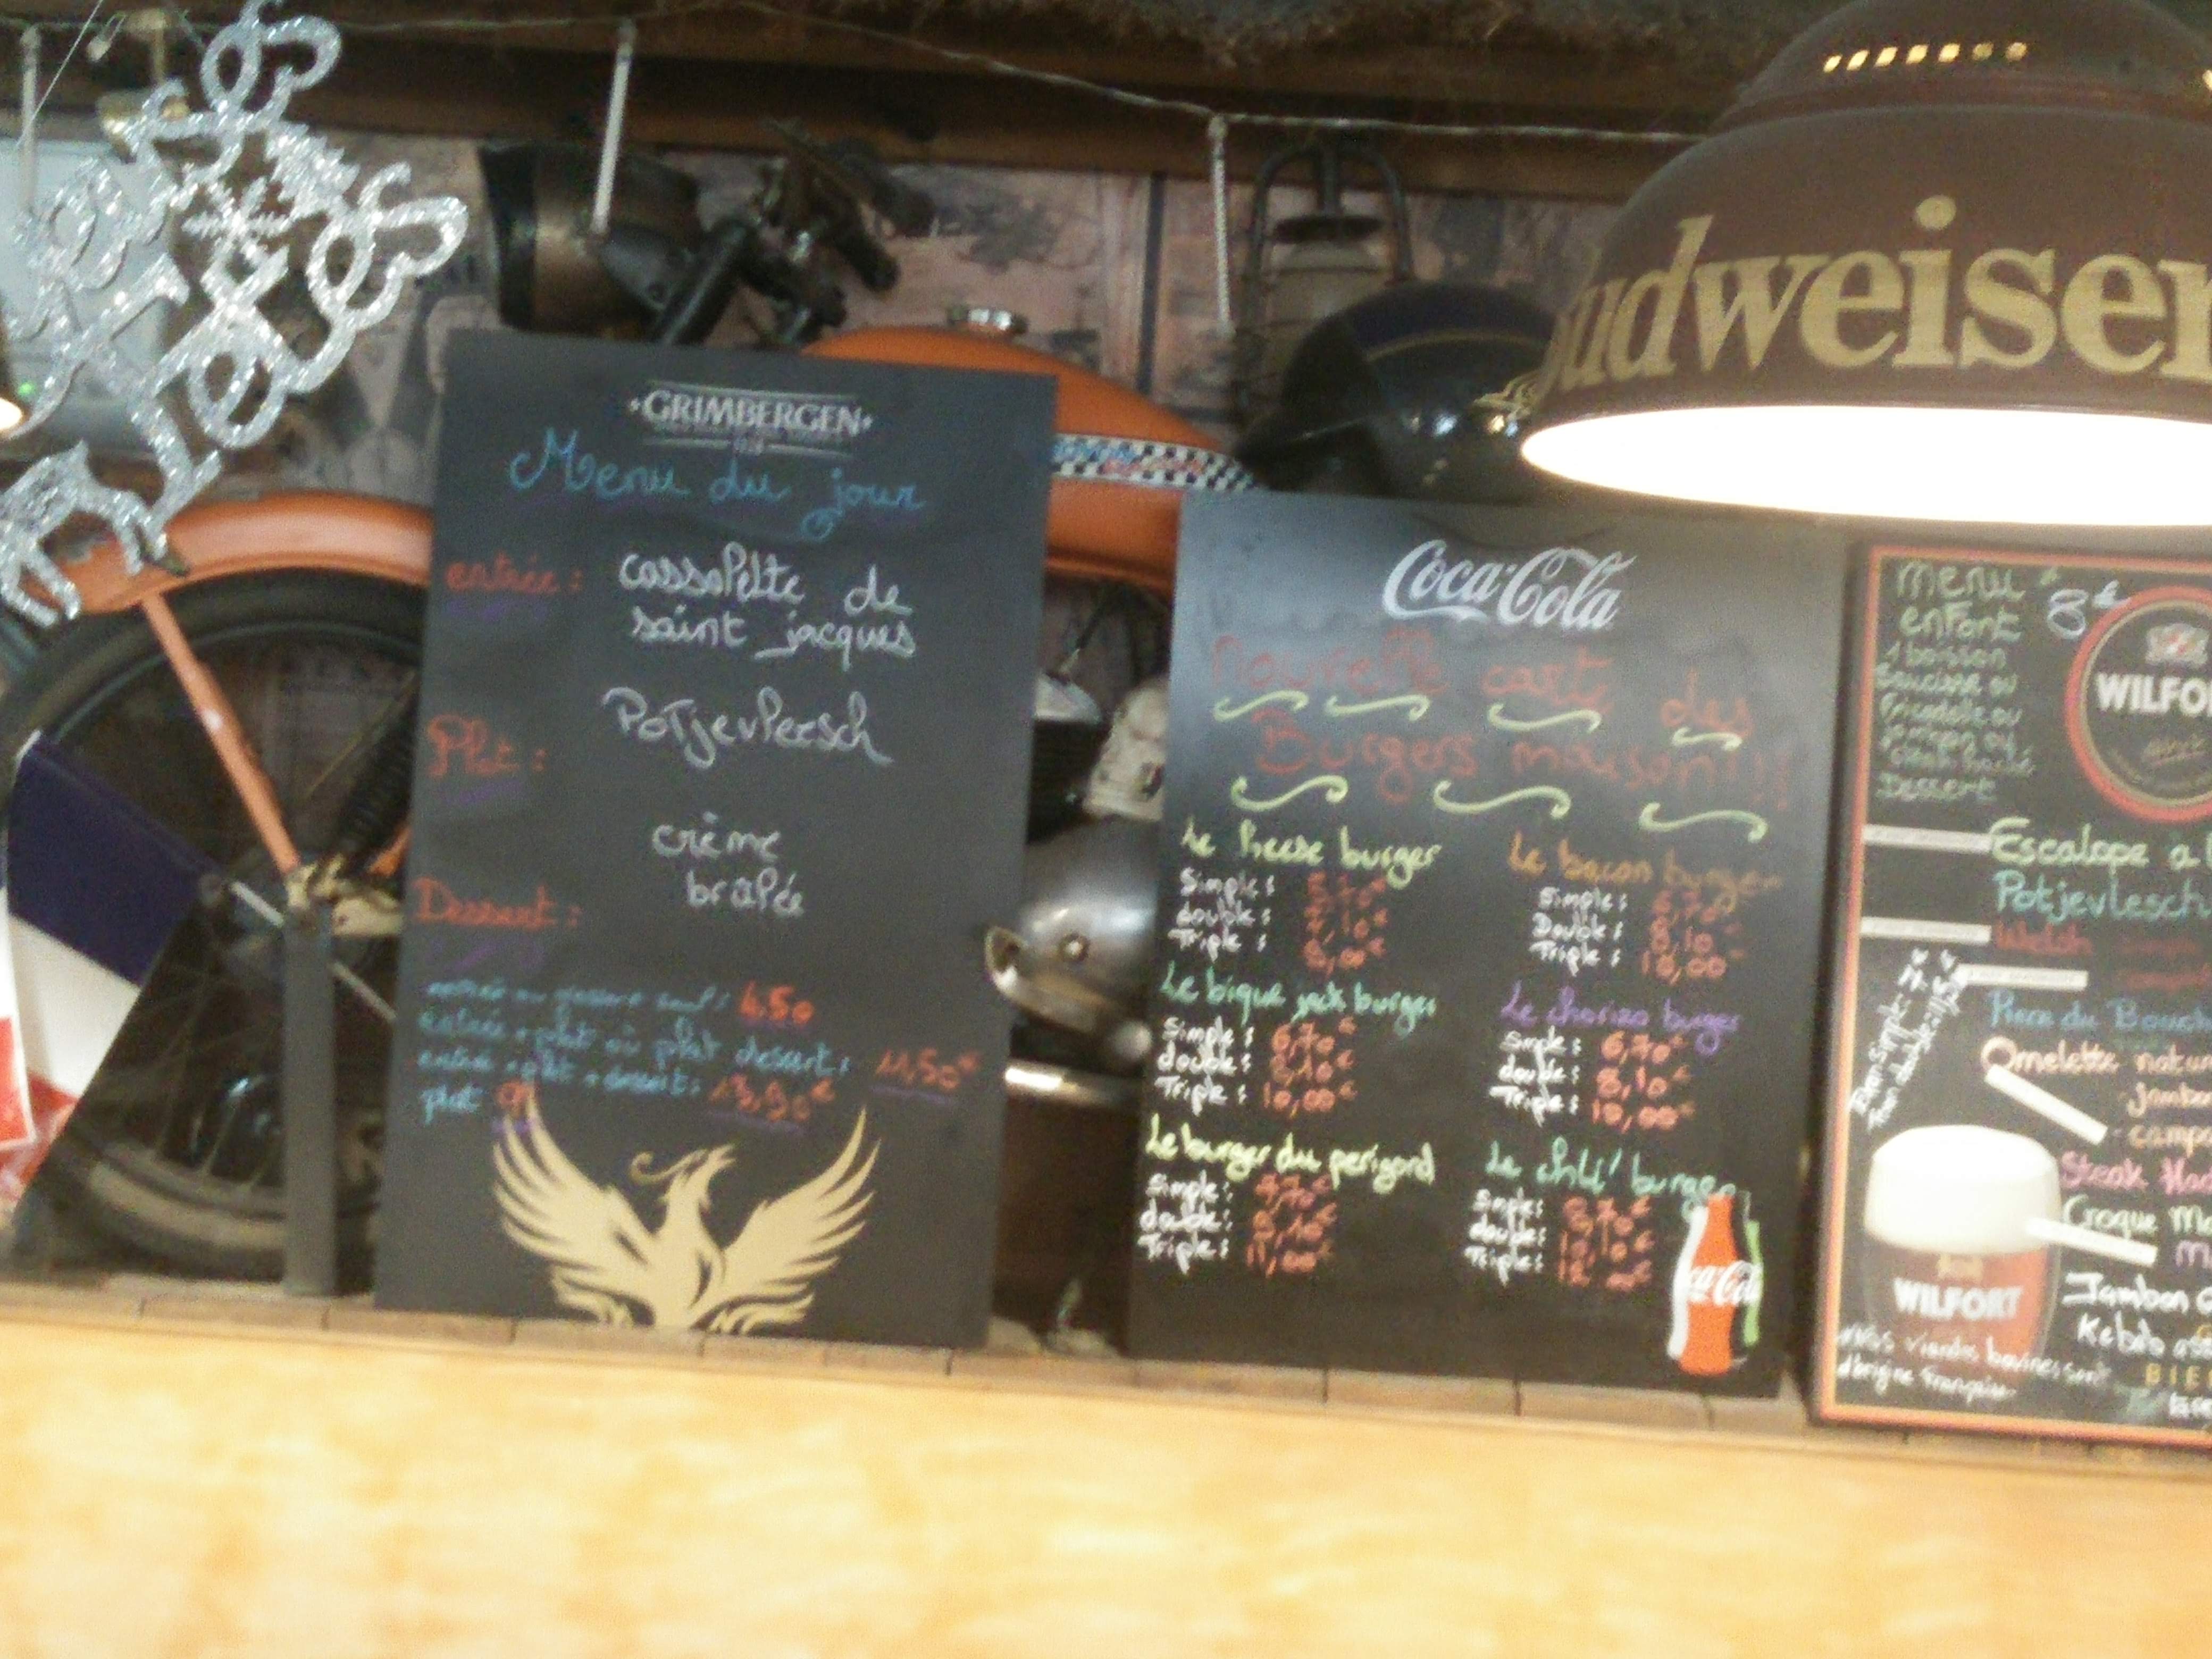 GRIMBERGEN
Menu du jour
entrée : cassolette de
saint jacques
Plat : Potjevleesch
crème
brûlée
Dessert :
entrée ou dessert seul : 4,50
entrée + plat ou plat dessert : 11,50€
entrée + plat + dessert : 13,90€
plat 9€
Coca-Cola
Nouvelle carte des
Burgers maison!!!
Le cheese burger
Simple :
double : 7,10€
Triple : 9,00€
Le bacon burger
Simple : 6,70€
Double : 8,10
Triple : 10,00€
Le bique jack burger
Simple : 6,70€
double : 8,10€
Triple : 10,00€
Le chorizo burger
Simple : 6,70€
double : 8,10€
Triple : 10,00€
Le burger du perigord
Simple :
double :
Triple : 11,00€
Le chili burger
Simple : 8,70€
double : 10,10€
Triple : 12,00€
Coca-Cola
udweiser
Menu
enfant 8€
1 boisson
Saucisse ou
fricadelle ou
Dessert
WILFO
Escalope à l
Potjevlesch
Welsh
Piece du Bouch
Omelette natur
jambo
camp
Steak Ha
Croque M
Jambon
Kebab ass
WILFORT
Nos viandes bovines sont
d'origine Française
BIE